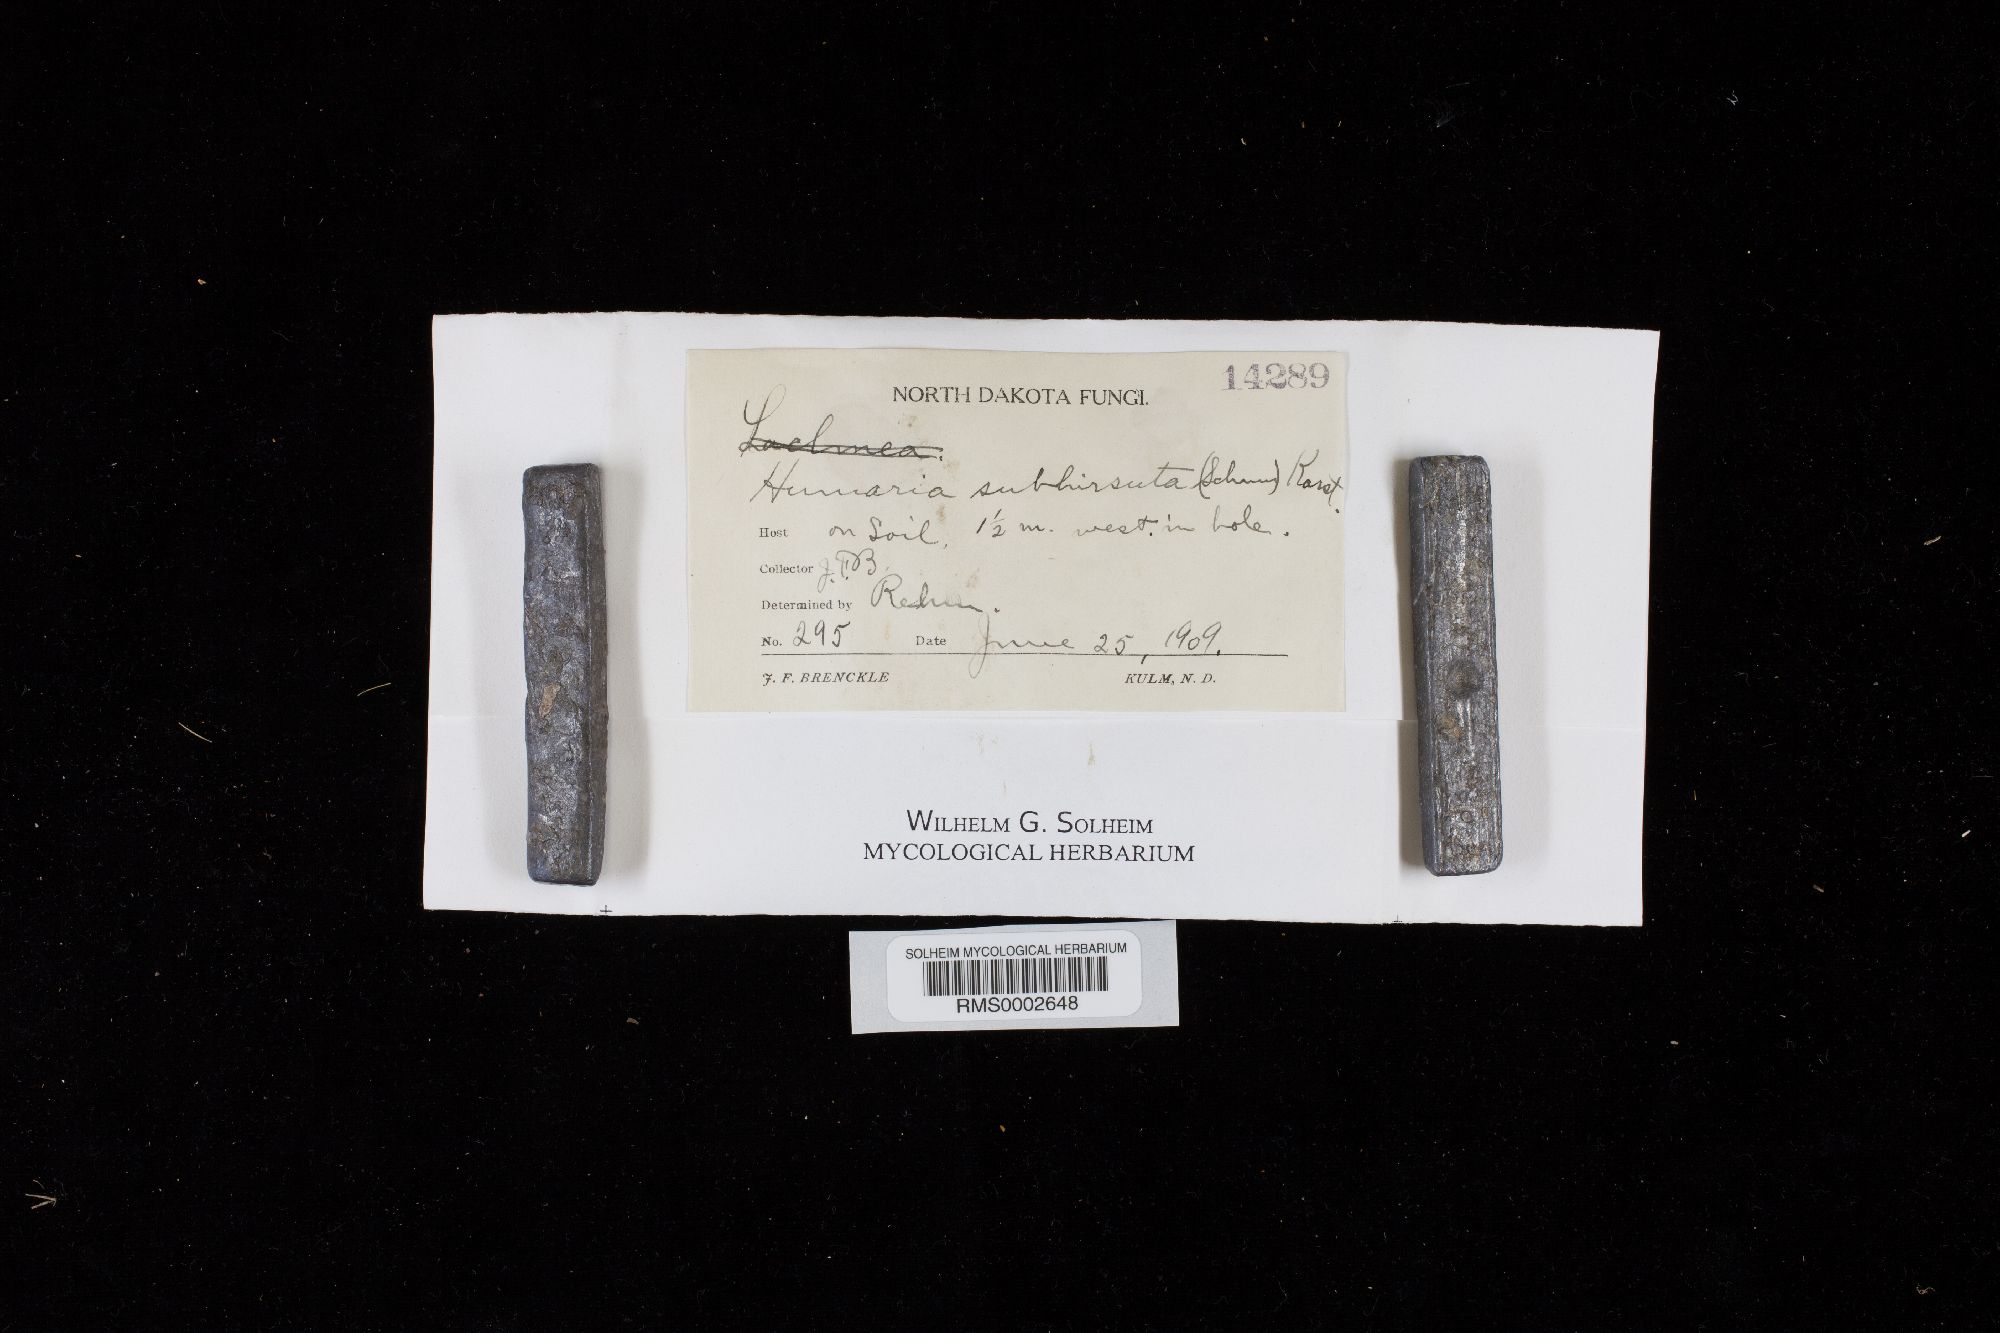 14289
NORTH DAKOTA FUNGI.
Lachnea.
Humaria subhirsuta (Schum) Karst.
Host on Soil, 1½ m. west. in hole.
Collector J.F.B.
Determined by Rehm.
No. 295 Date June 25, 1909.
J. F. BRENCKLE KULM, N. D.
WILHELM G. SOLHEIM
MYCOLOGICAL HERBARIUM
SOLHEIM MYCOLOGICAL HERBARIUM
RMS0002648